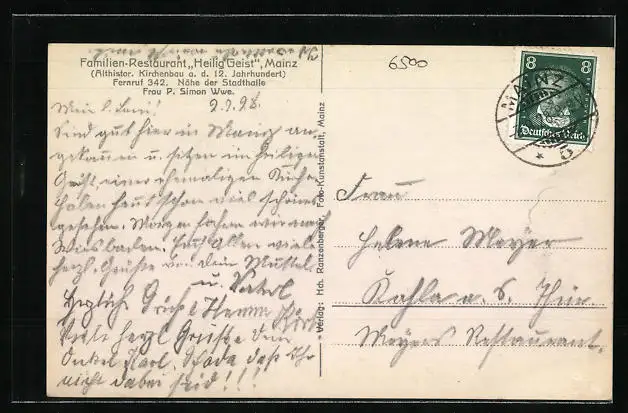 Familien-Restaurant „Heilig Geist", Mainz
(Althistor. Kirchenbau a. d. 12. Jahrhundert)
Fernruf 342. Nähe der Stadthalle
Frau P. Simon Wwe.
6500
8 8
Deutsches Reich
MAINZ
Mein l. 9.9.28.
Sind gut hier in Mainz an-
gekommen u. sitzen im Heiligen
Geist, einer ehemaligen Kirche
haben heut schon viel schönes
gesehen. Morgen fahren wir nach
Wiesbaden. Euch Allen viele
herzl. Grüße von Dein
u. Vaterl
Herzliche Grüße
Viele herzl Grüße Dein
Onkel Karl. Schade daß Ihr
nicht dabei seid!!!
Verlag: Hch. Ranzenberger, Foto-Kunstanstalt, Mainz
Frau
Helene Meyer
Kahla a. S. Thür
Meyers Restaurant.